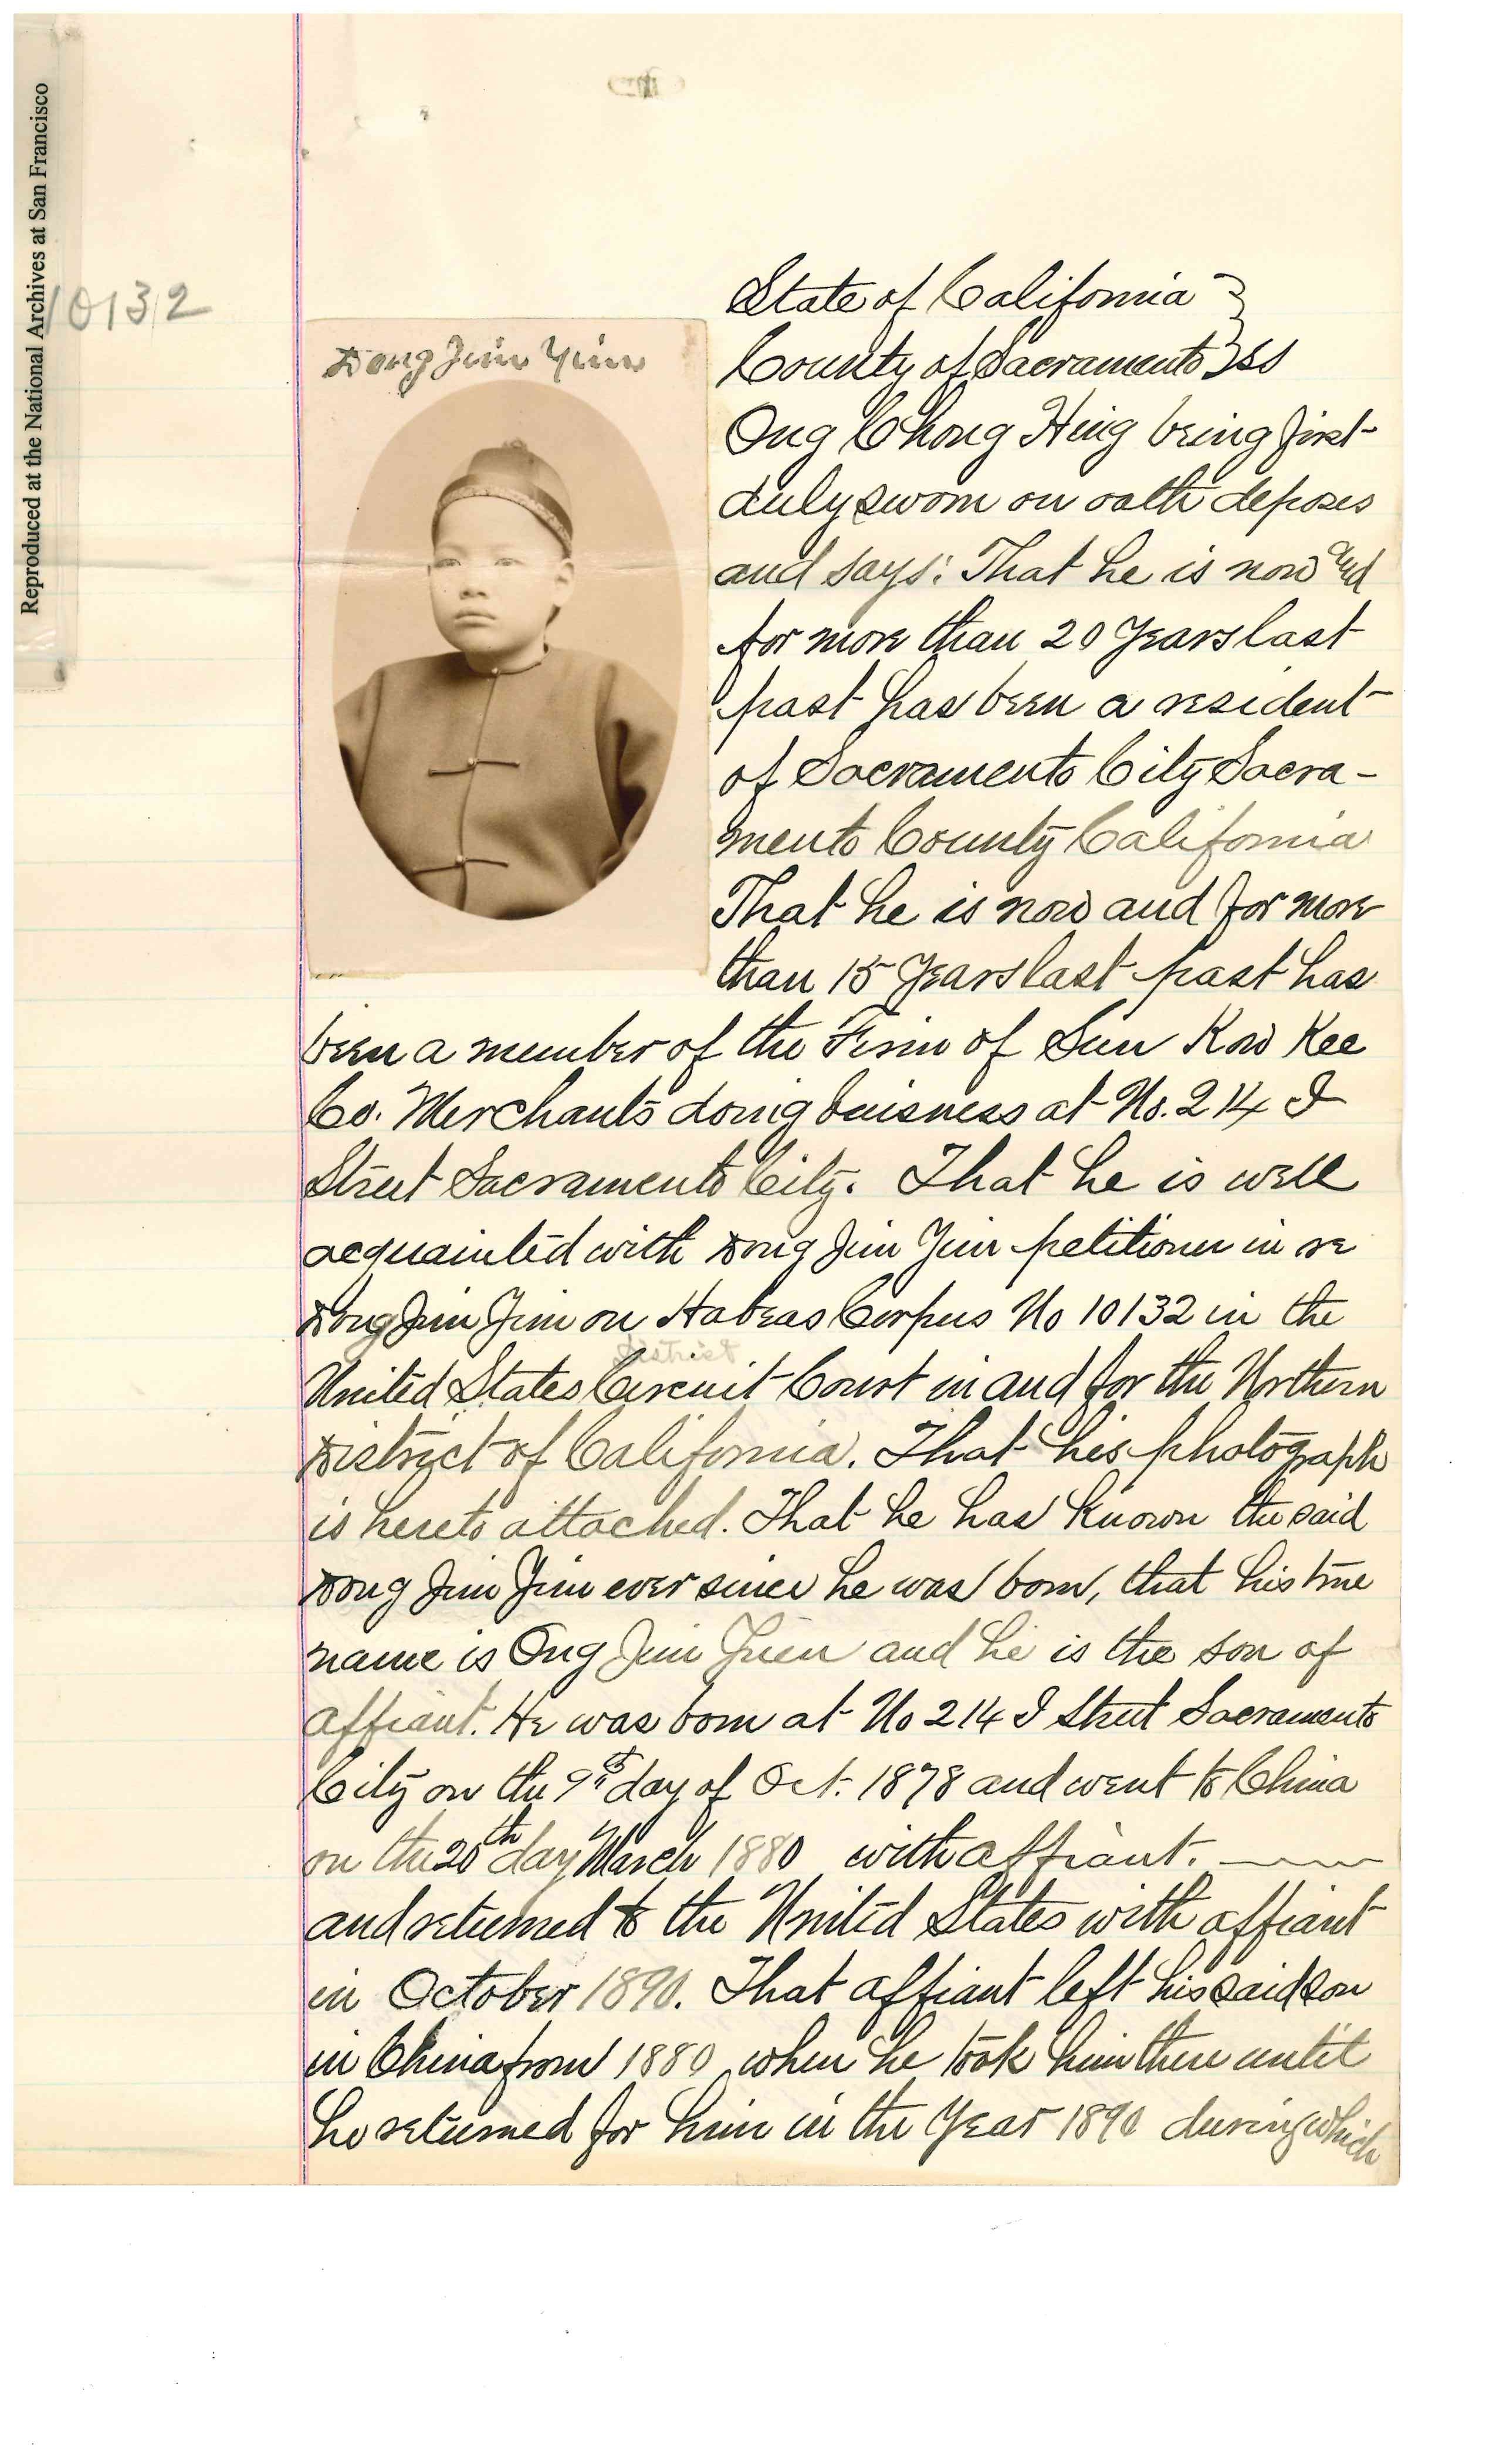 Reproduced at the National Archives at San Francisco
10132
Dong Jim Yuen
State of California }
County of Sacramento } SS
Ong Chong Hing being first
duly sworn on oath deposes
and says: That he is now and
for more than 20 Years last
past has been a resident
of Sacramento City Sacra-
mento County California
That he is now and for more
than 15 Years last past has
been a member of the Firm of Sun Kow Kee
Co. Merchants doing buisness at No. 214 I
Street Sacramento City. That he is well
acquainted with Dong Jim Yuen petitioner in re
Dong Jim Yuen on Habeas Corpus No 10132 in the
District
United States Circuit Court in and for the Northern
District of California. That his photograph
is hereto attached. That he has known the said
Dong Jim Yuen ever since he was born, that his true
name is Ong Jim Yuen and he is the son of
affiant. He was born at No 214 I Street Sacramento
City on the 9th day of Oct. 1878 and went to China
on the 20th day March 1880 with affiant.
and returned to the United States with affiant
in October 1890. That affiant left his said son
in China from 1880 when he took him there until
he returned for him in the Year 1890 during which